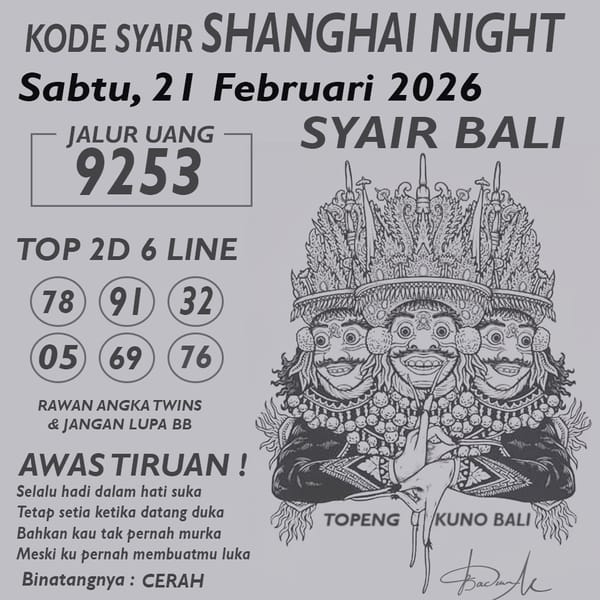 KODE SYAIR SHANGHAI NIGHT
Sabtu, 21 Februari 2026
JALUR UANG
9253
SYAIR BALI
TOP 2D 6 LINE
78 91 32
05 69 76
RAWAN ANGKA TWINS
& JANGAN LUPA BB
AWAS TIRUAN !
Selalu hadi dalam hati suka
Tetap setia ketika datang duka
Bahkan kau tak pernah murka
Meski ku pernah membuatmu luka
Binatangnya : CERAH
TOPENG KUNO BALI